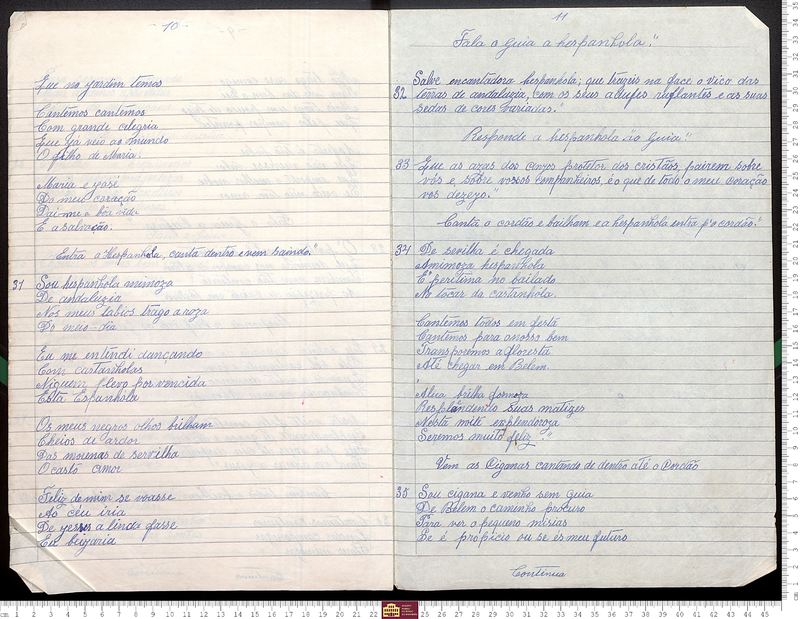 - 10 -
Que no jardim temos
Cantemos cantemos
Com grande alegria
Que já veio ao mundo
O filho de Maria.
Maria e yosé
Do meu coração
Dai-me a bôa vida
E a salvação.
Entra a Hespanhola, canta dentro e vem saindo."
31 Sou hespanhola mimoza
De andaluzia
Nos meus labios trago a roza
Do meio-dia
Eu me entendi dançando
Com castanholas
Niguem p levo por vencida
Esta Espanhola
Os meus negros olhos brilham
Cheios de ardor
Das morenas de servilha
O casto amor
Feliz de mim se voasse
Ao céu iria
De yesus a linda fasse
Eu beijaria
11
Fala o Guia a hespanhola."
Salve encantadora hespanhola; que trazeis na face o viço das
32 terras de andaluzia, com os seus aljufes ruflantes e as suas
sedas de cores variadas."
Responde a hespanhola ao Guia"
33 Que as azas dos anjos protetor dos cristãos, pairem sobre
vós e sobre vossos companheiros, é o que de todo o meu coração
vos dezejo.
Canta o cordão e bailham e a hespanhola entra p'o cordão."
34 De sevilha é chegada
A mimoza hespanhola
E peritima no bailado
No tocar da castanhóla.
Cantemos todos em festa
Cantemos para a nosso bem
Transporemos a floresta
Até chegar em Belem.
A lua brilha formoza
Resplandendo suas matizes
Nesta noite explendoroza
Seremos muito feliz"
Vem as Ciganas cantando de dentro até o Cordão
35 Sou cigana e venho sem guia
De Belem o caminho procuro
Para ver o pequeno misias
Se é propicio ou se és meu futuro
Continua